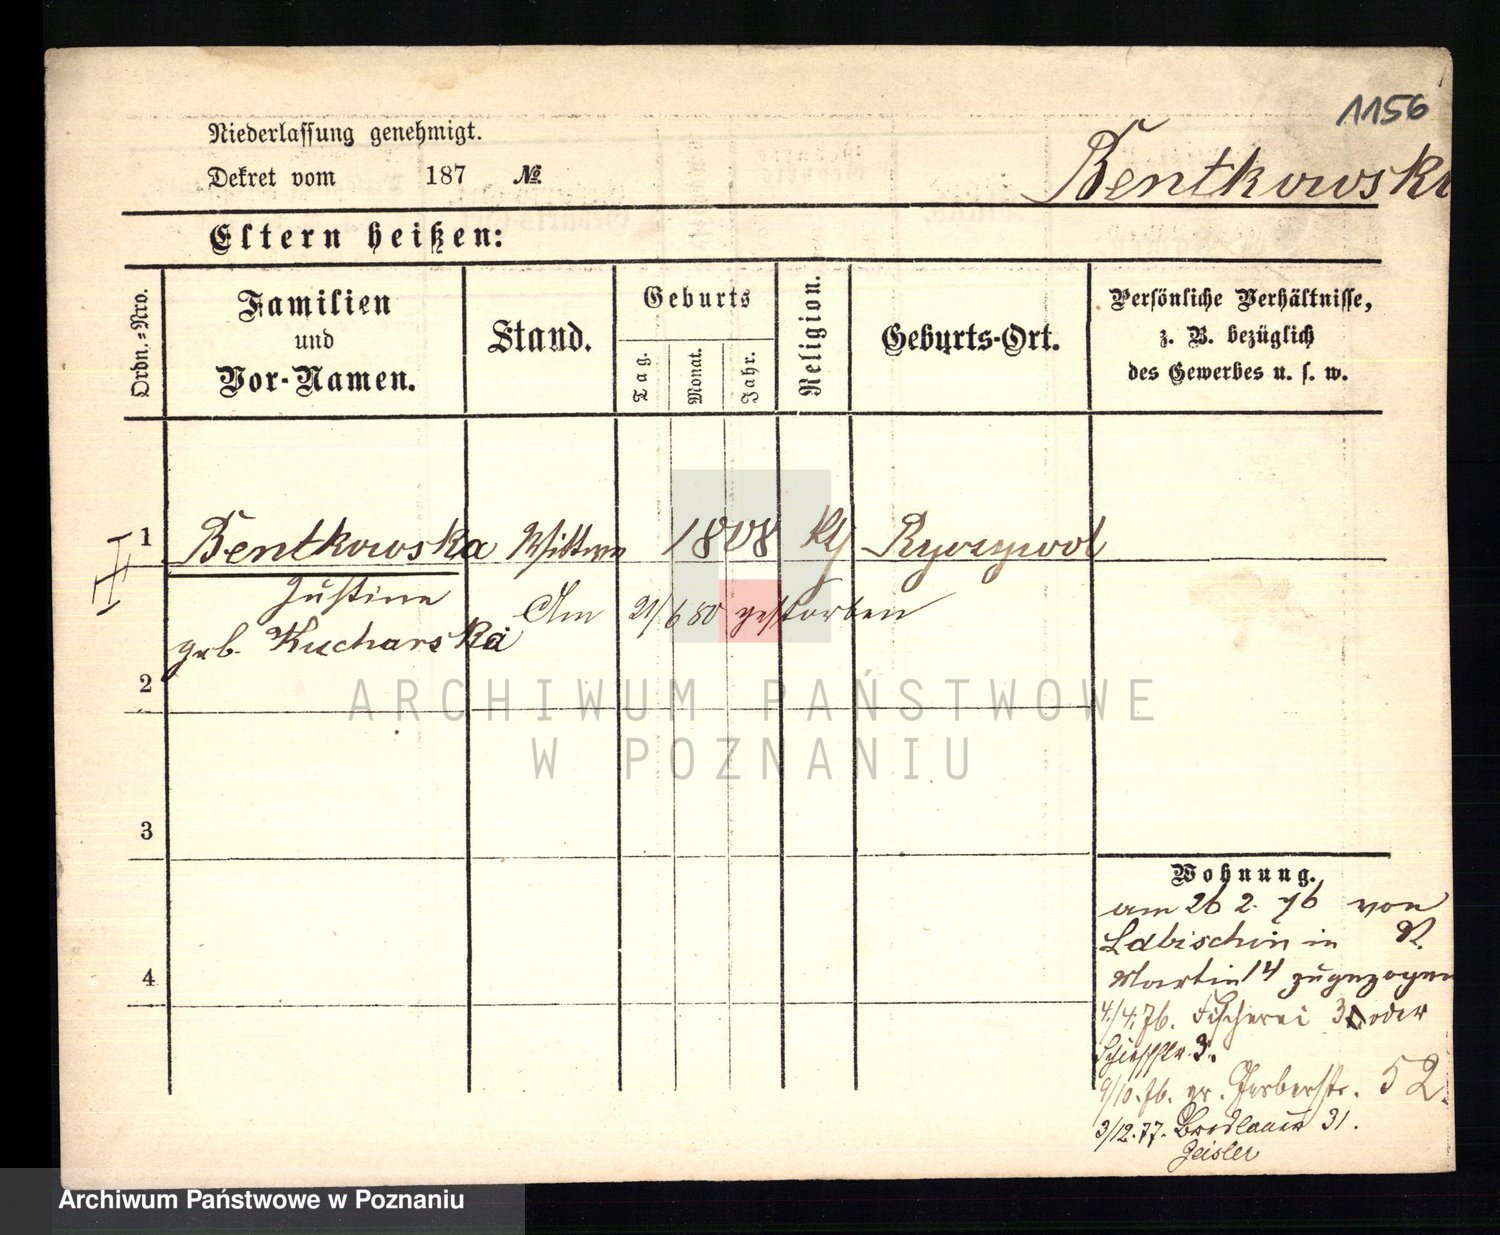 1156
Niederlassung genehmigt.
Dekret vom 187 №
Bentkowska
Eltern heißen:
Ordn.-Nro.
Familien
und
Vor-Namen.
Stand.
Geburts
Tag.
Monat.
Jahr.
Religion.
Geburts-Ort.
Persönliche Verhältnisse,
z. B. bezüglich
des Gewerbes u. s. w.
1 Bentkowska Wittwe 1808 Ryczywol
Justine
Am 21/6 80 gestorben
geb. Kucharska
2
ARCHIWUM PAŃSTWOWE
W POZNANIU
3
Wohnung.
am 26 2. 76 von
Labischin in St.
Martin 14 zugezogen
4
4./4.76. Fischerei 3 oder
3.
9/10.76. gr. Gerberstr. 52.
3/12.77. Breslauer 31.
Geisler
Archiwum Państwowe w Poznaniu